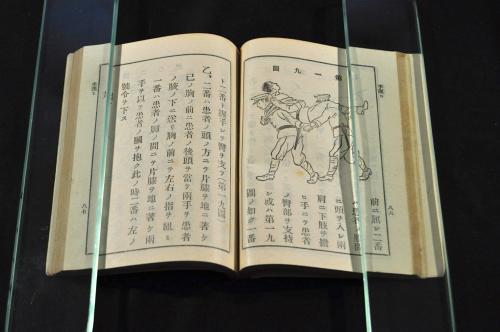 八六
第一九圖
前ニ屈シ二番
ニ頭ヲ入レ兩
肩ニ下肢ヲ擔
ヒ手ニテ患者
ノ臀部ヲ支持
シ或ハ第一九
圖ノ如ク一番
ト二番ト握手シテ臀ヲ支フ(第一九圖)
乙、二番ハ患者ノ頭ノ方ニテ片膝ヲ地ニ著ケ
己ノ胸ノ前ニ患者ノ後頭ヲ當テ兩手ヲ患者
ノ腋ノ下ニ送リ胸ノ前ニテ左右ノ指ヲ組ミ
一番ハ患者ノ脚ノ間ニテ片膝ヲ地ニ著ケ兩
手ヲ以テ患者ノ膕ヲ抱ク此ノ時二番ハ左ノ
號令ヲ下ス
八七